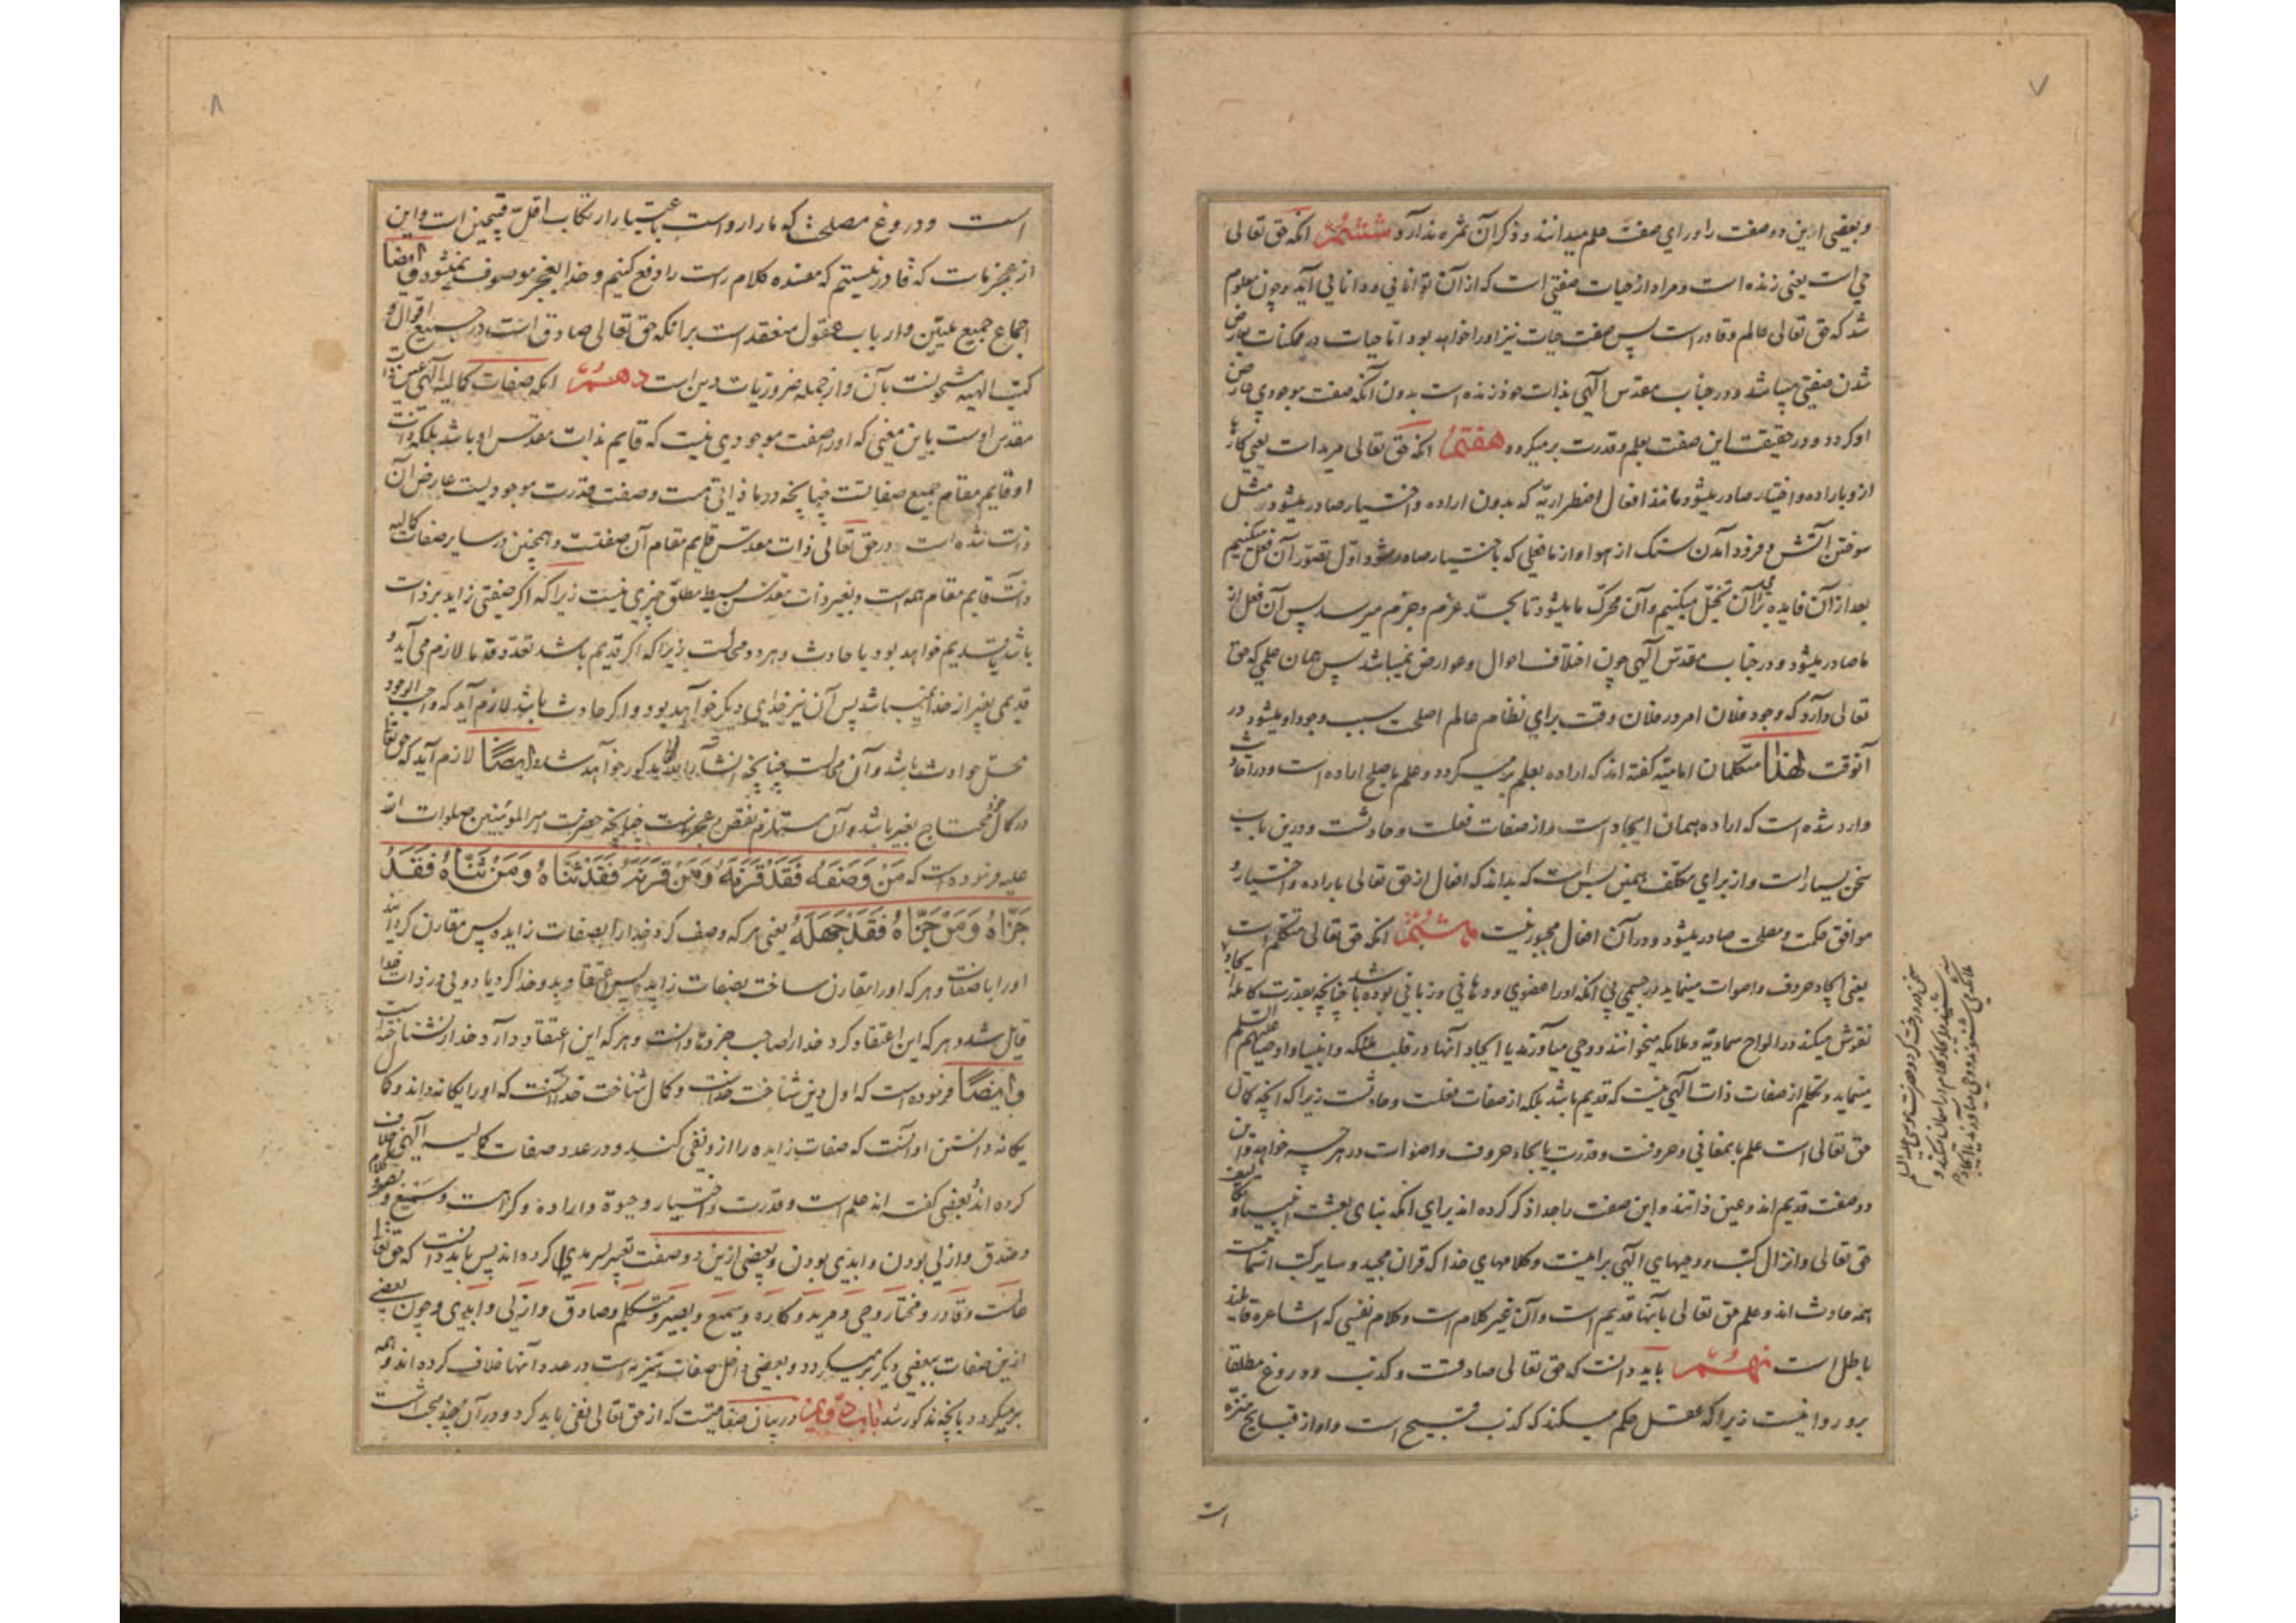 ۷
و بعضی ازین دو صفت را ورای صفت علم میدانند و ذکر آن ثمره ندارد ششم آنکه حق تعالی
حی است یعنی زنده است و مراد از حیات صفتی است که از آن توانایی و دانایی آید و چون معلوم
شد که حق تعالی عالم و قادر است پس صفت حیات نیز او را خواهد بود اما حیات در ممکنات بعارض
شدن صفتی میباشد و در جناب مقدس الهی بذات خود زنده است بدون آنکه صفت موجودی عارض
او گردد و در حقیقت این صفت بعلم و قدرت بر میگردد هفتم آنکه حق تعالی مرید است یعنی کارها
ازو باراده و اختیار صادر میشود نه مانند افعال اضطراریه که بدون اراده و اختیار صادر میشود مثل
سوختن آتش و فرود آمدن سنک از هوا و از ما فعلی که باختیار صادر میشود اول تصور آن فعل میکنیم
بعد از آن فایده برای آن تخیل میکنیم و آن محرک ما میشود تا بحد عزم و جزم میرسد پس آن فعل از
ما صادر میشود و در جناب مقدس الهی چون اختلاف احوال و عوارض نمیباشد پس همان علمی که حق
تعالی دارد که وجود فلان امر در فلان وقت برای نظام عالم اصلحست سبب وجود او میشود در
آنوقت لهذا متکلمان امامیه گفته اند که اراده بعلم بر میگردد و علم باصلح اراده است و در احادیث
وارد شده است که اراده همان ایجاد است و از صفات فعلست و حادثست و درین باب
سخن بسیار است و از برای مکلف همین بس است که بداند که افعال از حق تعالی باراده و اختیار و
موافق حکمت و مصلحت صادر میشود و در آن افعال مجبور نیست هشتم آنکه حق تعالی متکلم است
یعنی ایجاد حروف و اصوات مینماید در جسمی بی آنکه او را عضوی و دهانی و زبانی بوده باشد چنانچه بقدرت کامله ایجاد
نقوش میکند در الواح سماویه و ملائکه میخوانند و وحی میآورند یا ایجاد آنها در قلب ملئکه و انبیا و اوصیا علیهم السلم
مینماید و تکلم از صفات ذات الهی نیست که قدیم باشد بلکه از صفات فعلست و حادثست زیرا که آنچه کمال
حق تعالی است علم بمعانی و حروفست و قدرت بایجاد حروف و اصوات در هرچه خواهد و این
دو صفت قدیم اند و عین ذاتند و این صفت را جدا ذکر کرده اند برای آنکه بنای بعثت انبیا و تکلیف
حق تعالی و انزال کتب و وحیهای الهی بر اینست و کلامهای خدا که قران مجید و سایر کتب آسمانیست
همه حادث اند و علم حق تعالی بآنها قدیم است و آن غیر کلام است و کلام نفسی که اشاعره قایلند
باطل است نهم باید دانست که حق تعالی صادقست و کذب و دروغ مطلقا
برو روا نیست زیرا که عقل حکم میکند که کذب قبیح است و او از قبایح منزه
است
۸
است و دروغ مصلحت که ما را رواست باعتبار ارتکاب اقل قبیحین است و این
از عجز ماست که قادر نیستیم که مفسده کلام راست را دفع کنیم و خدا بعجز موصوف نمیشود و ایضا
اجماع جمیع ملیین و ارباب عقول منعقد است بر آنکه حق تعالی صادق است در جمیع اقوال و
کتب الهیه مشحونست بآن و از جمله ضروریات دین است دهم آنکه صفات کمالیه الهی عین ذات
مقدس اوست باین معنی که او را صفت موجودی نیست که قایم بذات مقدس او باشد بلکه ذات
او قایم مقام جمیع صفاتست چنانچه در ما ذاتی هست و صفت قدرت موجودیست عارض آن
ذات شده است و در حق تعالی ذات مقدس قایم مقام آن صفتست و همچنین در سایر صفات کمالیه
ذات قایم مقام همه است و بغیر ذات مقدس بسیط مطلق چیزی نیست زیرا که اگر صفتی زاید بر ذات
باشد یا قدیم خواهد بود یا حادث و هر دو محالست زیرا که اگر قدیم باشد تعدد قدما لازم می آید و
قدیمی بغیر از خدا نمیباشد پس آن نیز خدای دیگر خواهد بود و اگر حادث باشد لازم آید که واجب الوجود
محل حوادث باشد و آن محالست چنانچه انشاء الله مذکور خواهد شد و ایضا لازم آید که حق تعالی
در کمال خود محتاج بغیر باشد و آن مستلزم نقص و عجز است چنانچه حضرت امیر المومنین صلوات الله
علیه فرموده است که مَنْ وَصَفَهُ فَقَدْ قَرَنَهُ وَمَنْ قَرَنَهُ فَقَدْ ثَنَّاهُ وَمَنْ ثَنَّاهُ فَقَدْ
جَزَّاهُ وَمَنْ جَزَّاهُ فَقَدْ جَهِلَهُ یعنی هر که وصف کرد خدا را بصفات زایده پس مقارن گردانید
او را با صفات و هر که او را مقارن ساخت بصفات زایده پس اعتقاد بدو خدا کرد یا دویی در ذات خدا
قایل شد و هر که این اعتقاد کرد خدا را صاحب جزوها دانست و هر که این اعتقاد دارد خدا را نشناخته است
و ایضا فرموده است که اول دین شناخت خداست و کمال شناخت خدا آنست که او را یگانه داند و کمال
یگانه دانستن او آنست که صفات زایده را از او نفی کنند و در عدد صفات کمالیه الهی خلاف
کرده اند بعضی گفته اند علم است و قدرت و اختیار و حیوة و اراده و کراهت و سمیع و بصیر و کلام
و صدق و ازلی بودن و ابدی بودن و بعضی ازین دو صفت تعبیر بسرمدی کرده اند پس باید دانست که حق تعالی
عالمست و قادر و مختار و حی و مرید و کاره و سمیع و بصیر و متکلم و صادق و ازلی و ابدی و چون بعضی
ازین صفات ببعضی دیگر بر میگردد و بعضی داخل صفات تنزیه است در عدد آنها خلاف کرده اند و همه
بر میگردد بانچه مذکور شد باب دویم در بیان صفاتیست که از حق تعالی نفی باید کرد و در آن چند مبحث است